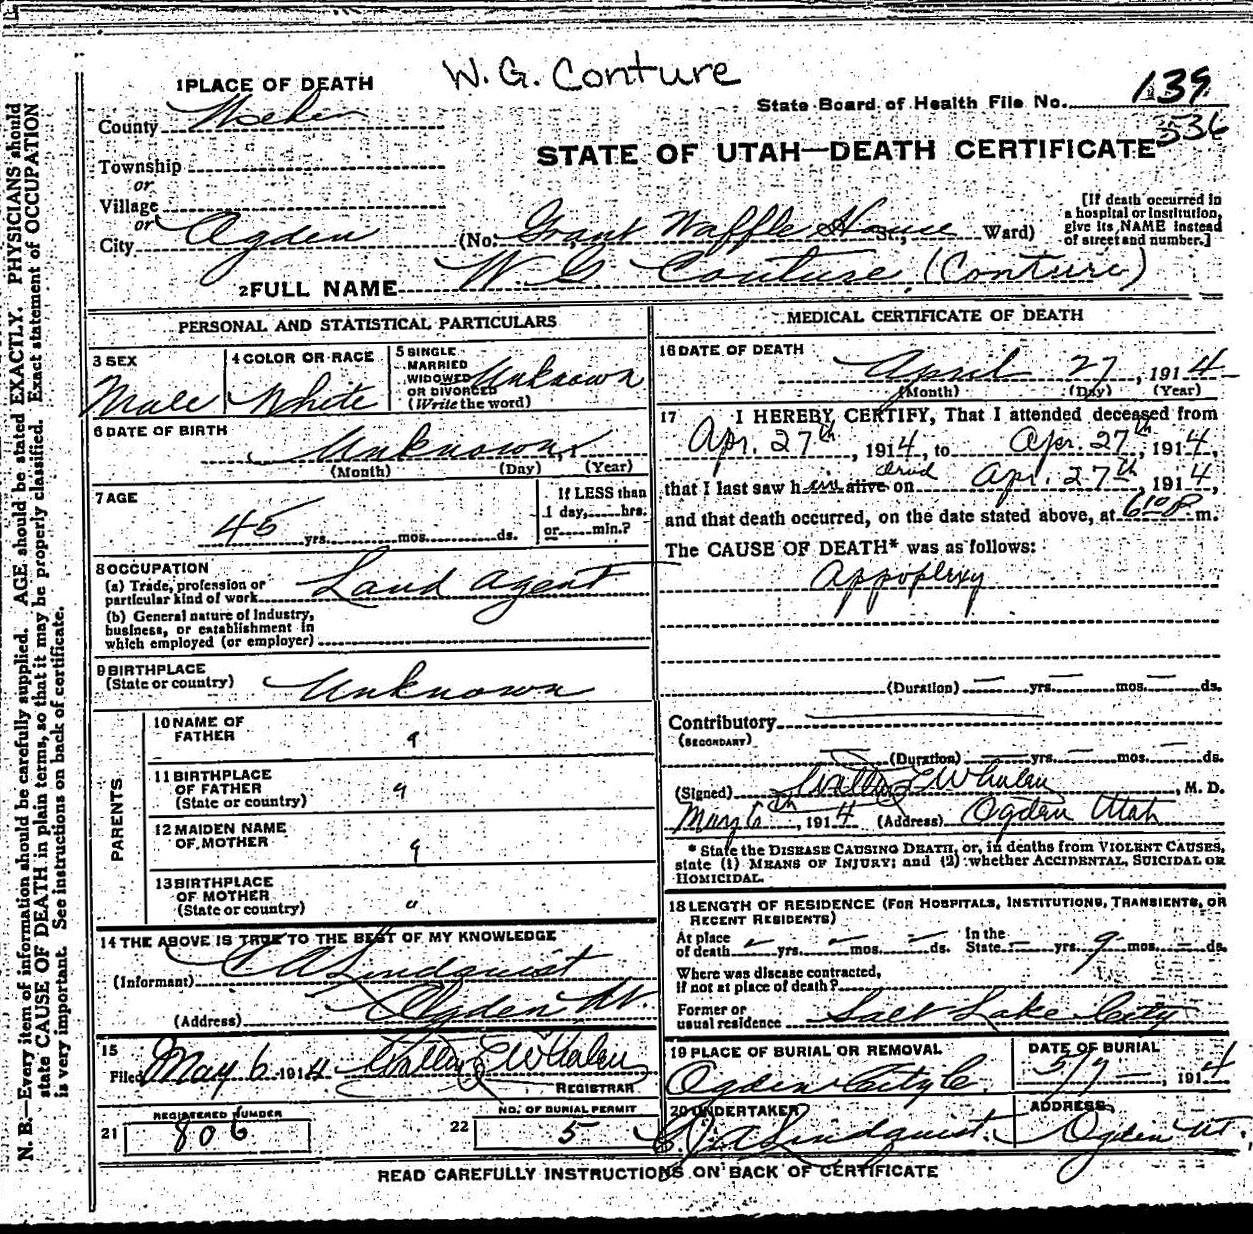 W. G. Conture
1 PLACE OF DEATH
State Board of Health File No. 139
536
County Weber
STATE OF UTAH—DEATH CERTIFICATE
Township
or
Village
or
City Ogden (No. Grant Waffle House St., Ward)
[If death occurred in a hospital or institution, give its NAME instead of street and number.]
2 FULL NAME W. G. Couture, (Conture)
PERSONAL AND STATISTICAL PARTICULARS
3 SEX Male
4 COLOR OR RACE White
5 SINGLE MARRIED WIDOWED OR DIVORCED (Write the word) Unknown
6 DATE OF BIRTH Unknown
(Month) (Day) (Year)
7 AGE 45 yrs. mos. ds.
If LESS than 1 day, hrs. or min.?
8 OCCUPATION
(a) Trade, profession or particular kind of work Land agent
(b) General nature of Industry, business, or establishment in which employed (or employer)
9 BIRTHPLACE (State or country) Unknown
PARENTS
10 NAME OF FATHER
11 BIRTHPLACE OF FATHER (State or country)
12 MAIDEN NAME OF MOTHER
13 BIRTHPLACE OF MOTHER (State or country)
14 THE ABOVE IS TRUE TO THE BEST OF MY KNOWLEDGE
(Informant) A Lindquist
(Address) Ogden Ut.
15
Filed May 6 1914 E Whalen
REGISTRAR
21 REGISTERED NUMBER 806
22 NO. OF BURIAL PERMIT 5
MEDICAL CERTIFICATE OF DEATH
16 DATE OF DEATH April 27, 1914
(Month) (Day) (Year)
17 I HEREBY CERTIFY, That I attended deceased from
Apr. 27th, 1914, to Apr. 27th, 1914,
that I last saw him alive dead on Apr. 27th, 1914,
and that death occurred, on the date stated above, at 6 10 P m.
The CAUSE OF DEATH* was as follows:
Appoplexy
(Duration) — yrs. — mos. — ds.
Contributory
(SECONDARY)
(Duration) — yrs. — mos. — ds.
(Signed) E Whalen, M. D.
May 6th, 1914 (Address) Ogden Utah
* State the DISEASE CAUSING DEATH, or, in deaths from VIOLENT CAUSES, state (1) MEANS OF INJURY; and (2) whether ACCIDENTAL, SUICIDAL OR HOMICIDAL.
18 LENGTH OF RESIDENCE (FOR HOSPITALS, INSTITUTIONS, TRANSIENTS, OR RECENT RESIDENTS)
At place of death — yrs. — mos. — ds. In the State — yrs. 9 mos. — ds.
Where was disease contracted, if not at place of death?
Former or usual residence Salt Lake City
19 PLACE OF BURIAL OR REMOVAL Ogden City
DATE OF BURIAL 5/7 —, 1914
20 UNDERTAKER A Lindquist.
ADDRESS Ogden Ut.
READ CAREFULLY INSTRUCTIONS ON BACK OF CERTIFICATE
N. B.—Every item of information should be carefully supplied. AGE should be stated EXACTLY. PHYSICIANS should
state CAUSE OF DEATH in plain terms, so that it may be properly classified. Exact statement of OCCUPATION
is very important. See instructions on back of certificate.